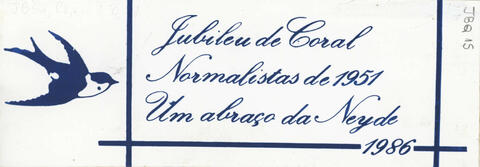 Jubileu de Coral
Normalistas de 1951
Um abraço da Neyde
1986
JBQ 15